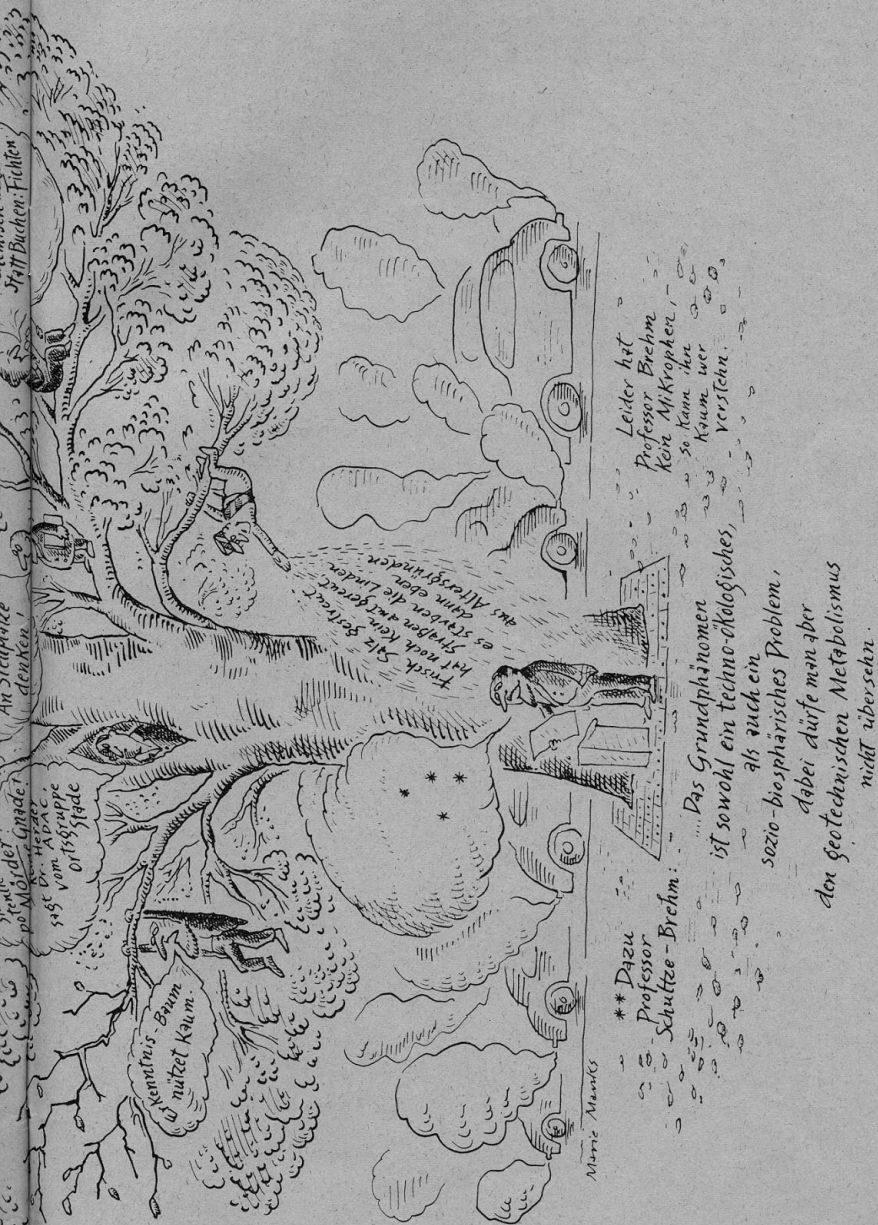 Statt Buchen: Fichten
An Stellplätze
denken!
Mörder
Keine Gnade!
sagt Dr. Herder
vom ADAC
Ortsgruppe
Stade
Erkenntnis Baum
nützet Kaum.
Frisch Salz gestreut
hat noch kein
Straßenamt gereut
es starben die Linden
dann eben
aus Altersgründen
* * * *
Marie Marcks
** Dazu
Professor
Schultze-Brehm:
"Das Grundphänomen
ist sowohl ein techno-ökologisches,
als auch ein
sozio-biosphärisches Problem,
dabei dürfe man aber
den geotechnischen Metabolismus
nicht übersehn.
Leider hat
Professor Brehm
Kein Mikrophon, –
so kann ihn
Kaum wer
verstehn.